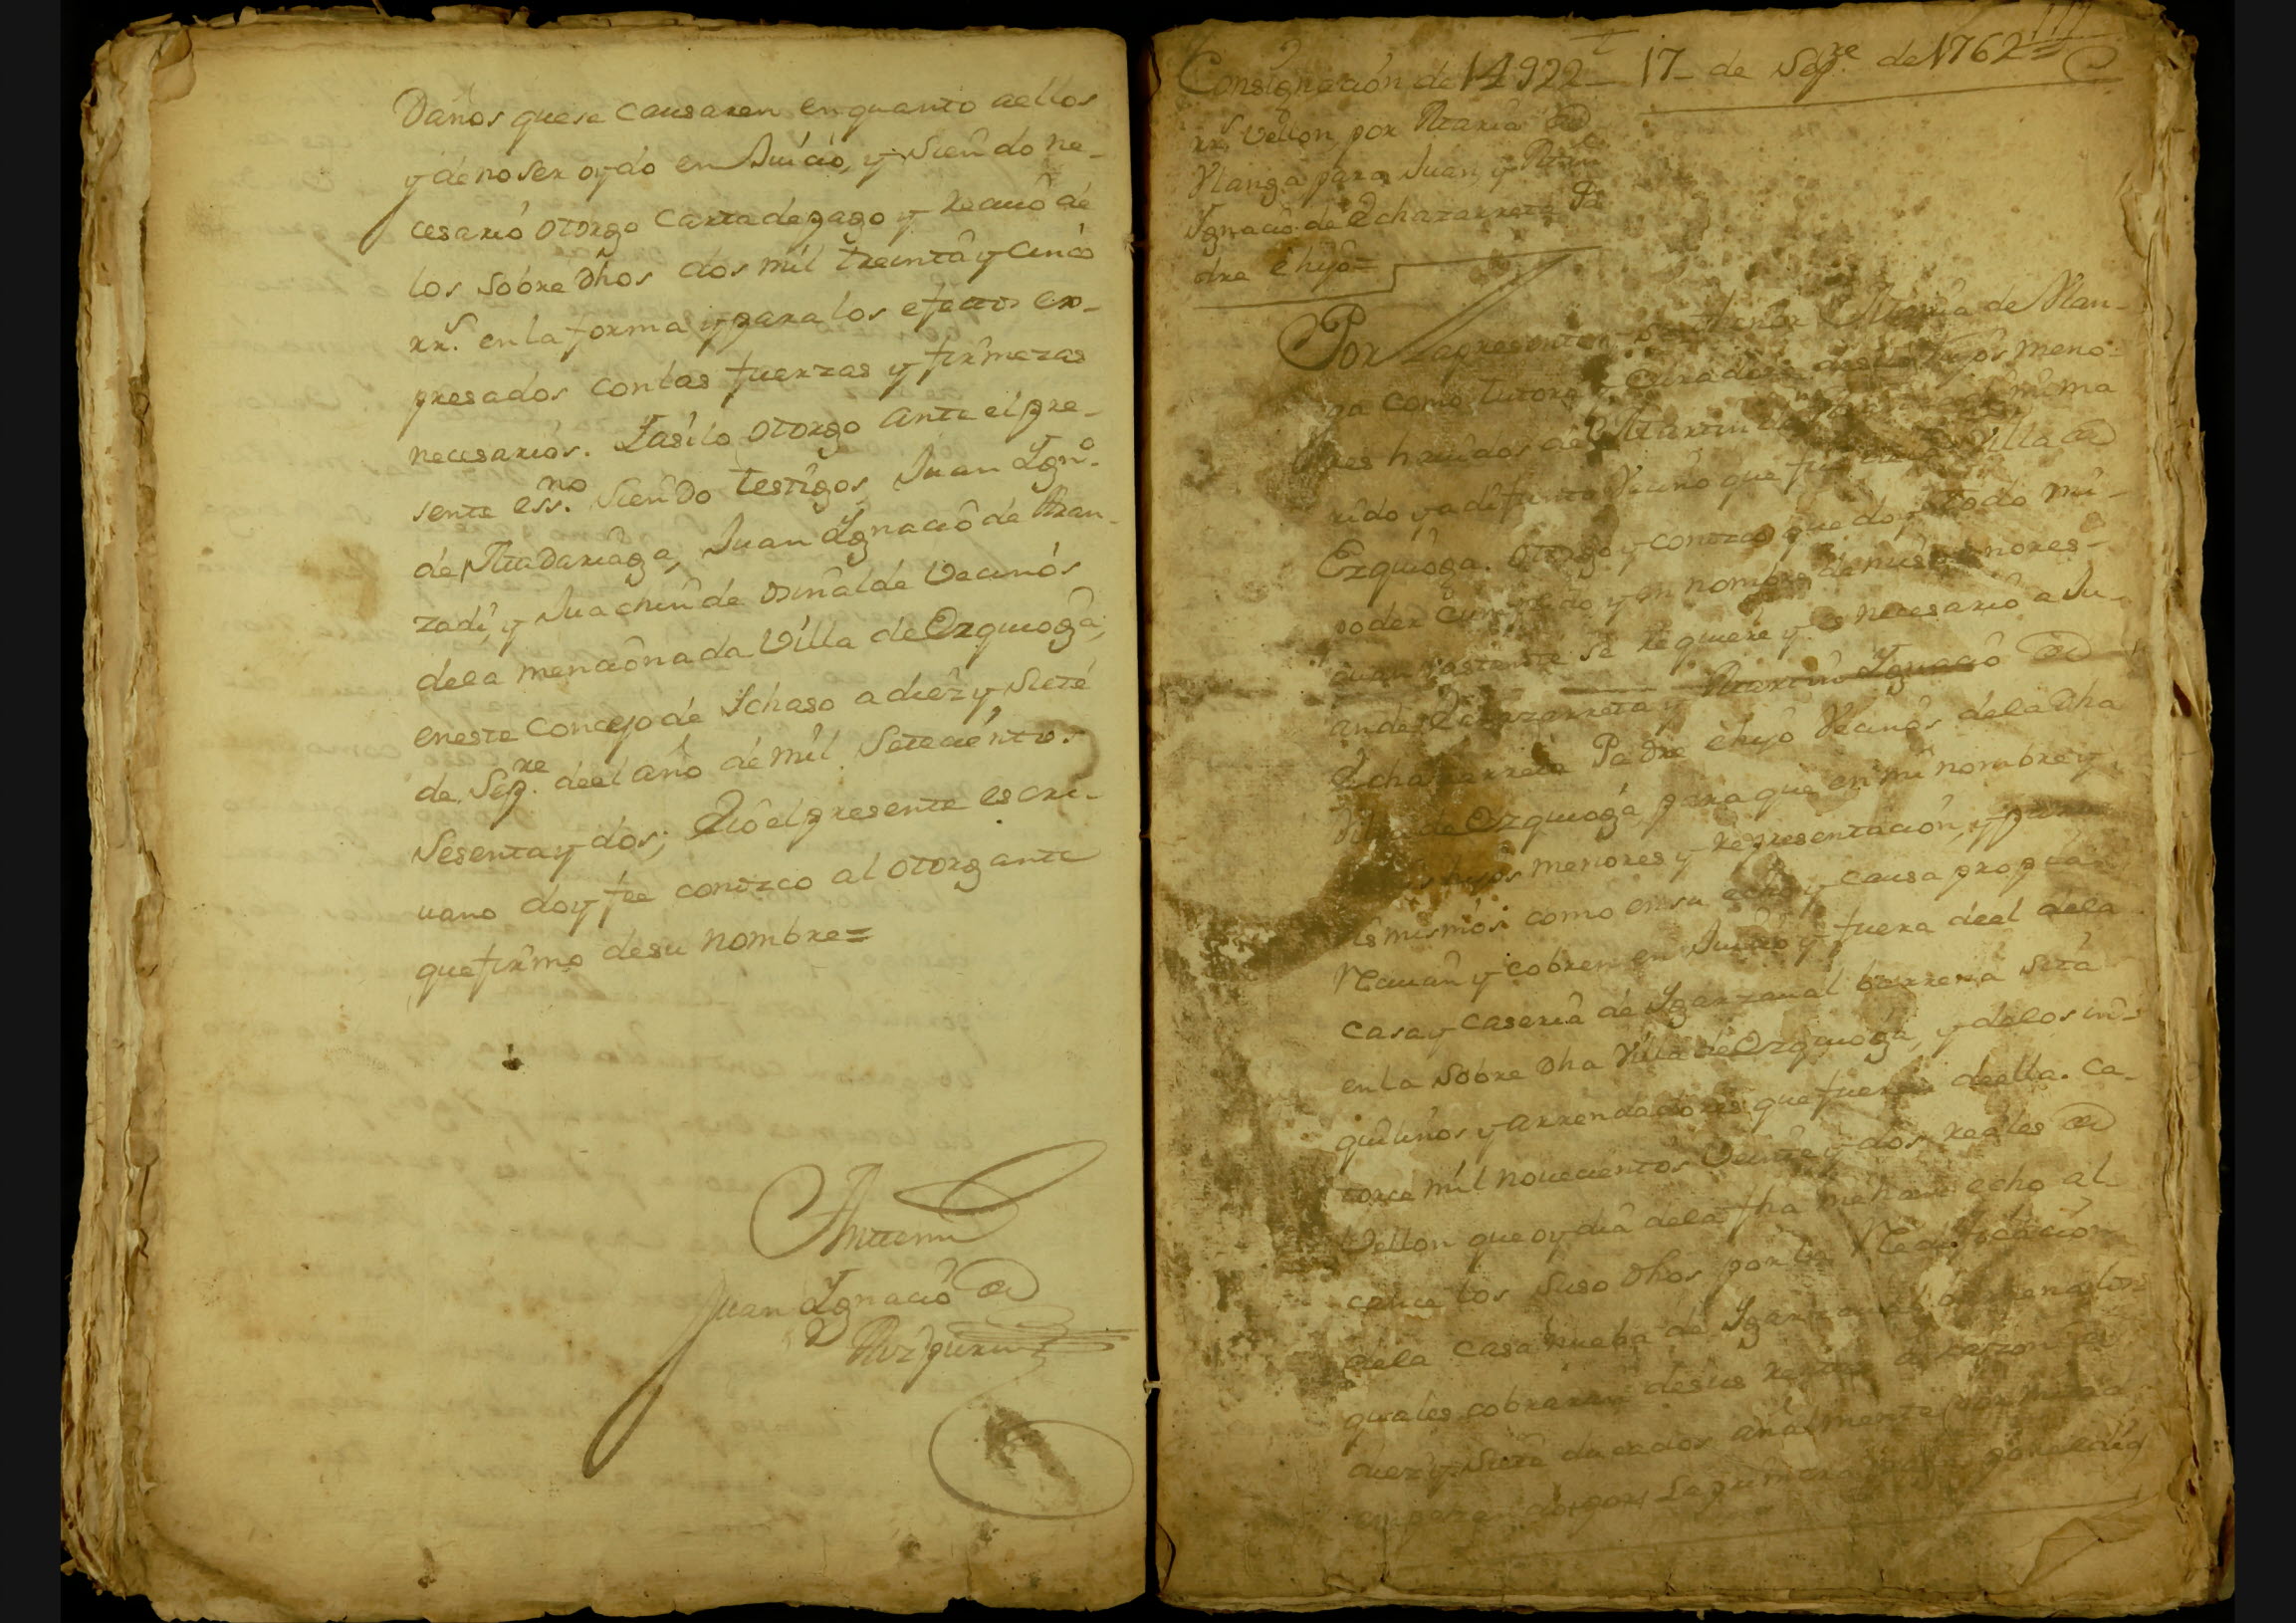 Daños que se causaren en quanto aellos
y de no ser oydo en Juicio, y siendo ne-
cesario otorgo carta de pago y reciuo de
los sobre dhos dos mil treinta y cinco
rr.s en la forma y para los efectos ex-
presados con las fuerzas y firmezas
necesarios. Iasi lo otorgo ante el pre-
sente ess.no siendo testigos Juan Ign.o
de Madariaga, Juan Ignacio de Aran-
zadi, y Juachin de Osinalde Vecinos
dela mencionada Villa de Ezquioga,
en este Concejo de Ichaso a diez y siete
de Sep.re deel año de mil setecientos
sesenta y dos; E io el presente escri-
uano doy fee conozco al otorgante
que firmo de su nombre=
Antemi
Juan Ignacio de
Consignacion de 14922 17 de Sep.re de 1762=
rr.s Vellon por Maria de
Vlanga para Juan, y Mrn
Ignacio de Echazarreta Pa
dre e hijo=
Por la presente Maria de Vlan-
ga como tutora y Curadora de mis hijos meno-
res hauidos de Martin de mi ma
rido ya difunto Vecino que fue de la Villa de
Ezquioga. Otorgo y conozco que doy todo mi
poder cumplido y en nombre de mis menores
quan bastante se requiere y es necesario a Ju-
an de Echazarreta y Martin Ignacio de
Echazarreta Padre e hijo Vecinos dela dha
Villa de Ezquioga para que en mi nombre y
hijos menores y representacion, y para
si mismos como en su echo y causa propia
Reciuan y cobren en Juicio y fuera deel dela
Casa y Caseria de Igarzaual barrena sita
en la sobre dha Villa de Ezquioga, y delos in-
quilinos y arrendadores que fueren deella. Ca-
torce mil nouecientos veinte y dos reales de
Vellon que oy dia dela fha me han echo al-
cance los suso dhos por la Redificacion
dela Casa nueba de Igarzaual
quales cobraran de sus rentas a razon de
diez y siete ducados añalmente por mitad
empezando por la primera por el dia